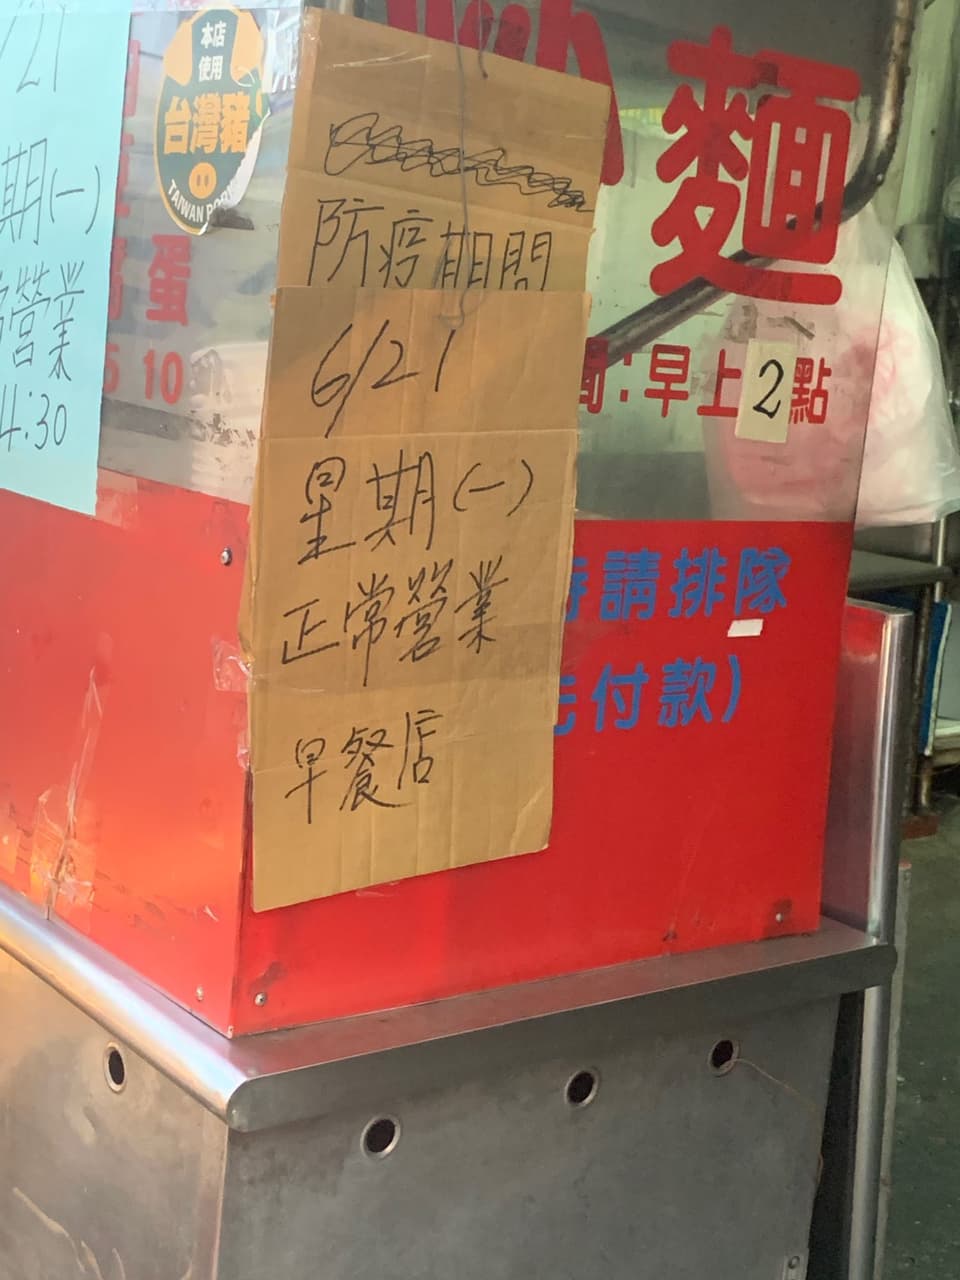 /21
期(一)
營業
4:30
本店
使用
台灣豬
TAIWAN PORK
蛋
10
防疫期間
6/21
星期(一)
正常營業
早餐店
麵
間:早上2點
時請排隊
先付款)